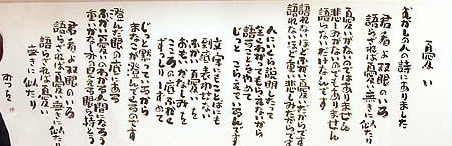 憂い
むかしの人の詩にありました
君看よ双眼のいろ
語らざれば憂い無きに似たり
憂いがないのではありません
悲しみがないのでもありません
語らないだけなんです
語れないほど深い憂いだからです
語れないほど重い悲しみだからです
人にいくら説明したって
全くわかってもらえないから
語ることをやめて
じっとこらえているんです
文字にもことばにも
到底表わせない
ふかい憂いを
おもいかなしみを
こころの底ふかく
ずっしりしずめて
じっと黙っているから
まなこが澄んでくるのです
澄んだ眼の底にある
ふかい憂いのわかる人間になろう
重いかなしみの見える眼を持とう
君看よ双眼のいろ
語らざれば憂い無きに似たり
語らざれば憂い
無きに似たり
みつを